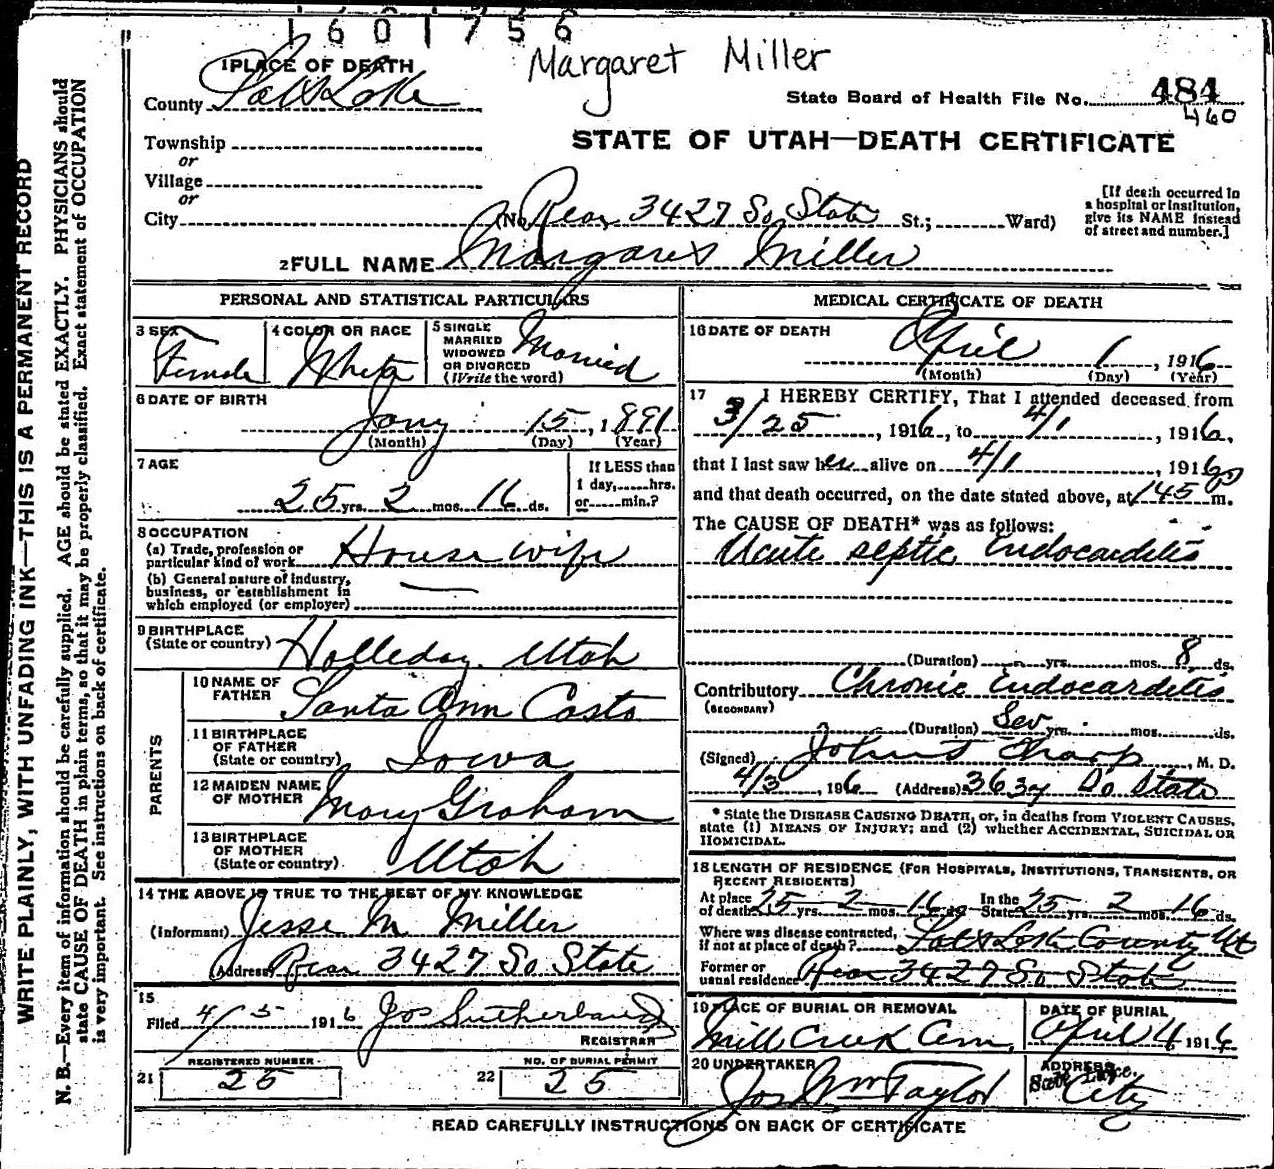 1601756
Margaret Miller
1 PLACE OF DEATH
County Salt Lake
State Board of Health File No. 484
460
STATE OF UTAH—DEATH CERTIFICATE
Township
or
Village
or
City (No. Rear 3427 So State St.; Ward)
[If death occurred in
a hospital or institution,
give its NAME instead
of street and number.]
2 FULL NAME Margaret Miller
PERSONAL AND STATISTICAL PARTICULARS
3 SEX Female
4 COLOR OR RACE White
5 SINGLE
MARRIED
WIDOWED
OR DIVORCED
(Write the word) Married
6 DATE OF BIRTH
Jany 15, 1891
(Month) (Day) (Year)
7 AGE
25 yrs. 2 mos. 16 ds.
If LESS than
1 day, hrs.
or min.?
8 OCCUPATION
(a) Trade, profession or
particular kind of work House wife
(b) General nature of industry,
business, or establishment in
which employed (or employer)
9 BIRTHPLACE
(State or country) Holleday Utah
PARENTS
10 NAME OF
FATHER Santa Ann Casto
11 BIRTHPLACE
OF FATHER
(State or country) Iowa
12 MAIDEN NAME
OF MOTHER Mary Graham
13 BIRTHPLACE
OF MOTHER
(State or country) Utah
14 THE ABOVE IS TRUE TO THE BEST OF MY KNOWLEDGE
(Informant) Jesse M Miller
(Address) Rear 3427 So State
15
Filed 4/5 1916 Jos Sutherland
REGISTRAR
REGISTERED NUMBER
21 25
NO. OF BURIAL PERMIT
22 25
MEDICAL CERTIFICATE OF DEATH
16 DATE OF DEATH
April 1, 1916
(Month) (Day) (Year)
17 I HEREBY CERTIFY, That I attended deceased from
3/25, 1916, to 4/1, 1916,
that I last saw her alive on 4/1, 1916
and that death occurred, on the date stated above, at 145 m.
The CAUSE OF DEATH* was as follows:
Acute septic Endocarditis
(Duration) yrs. mos. 8 ds.
Contributory Chronic Endocarditis
(SECONDARY)
(Duration) Sev yrs. mos. ds.
(Signed) Tharp, M. D.
4/3, 1916 (Address) So State
* State the DISEASE CAUSING DEATH, or, in deaths from VIOLENT CAUSES,
state (1) MEANS OF INJURY; and (2) whether ACCIDENTAL, SUICIDAL OR
HOMICIDAL.
18 LENGTH OF RESIDENCE (FOR HOSPITALS, INSTITUTIONS, TRANSIENTS, OR
RECENT RESIDENTS)
At place
of death 25 yrs. 2 mos. 16 ds. In the
State 25 yrs. 2 mos. 16 ds.
Where was disease contracted,
if not at place of death? Salt Lake County Ut
Former or
usual residence Rear 3427 So State
19 PLACE OF BURIAL OR REMOVAL
Mill Creek Cem.
DATE OF BURIAL
April 4 1916
20 UNDERTAKER
Jos Wm Taylor
ADDRESS
Salt Lake
City
READ CAREFULLY INSTRUCTIONS ON BACK OF CERTIFICATE
WRITE PLAINLY, WITH UNFADING INK—THIS IS A PERMANENT RECORD
N. B.—Every item of information should be carefully supplied. AGE should be stated EXACTLY. PHYSICIANS should
state CAUSE OF DEATH in plain terms, so that it may be properly classified. Exact statement of OCCUPATION
is very important. See instructions on back of certificate.